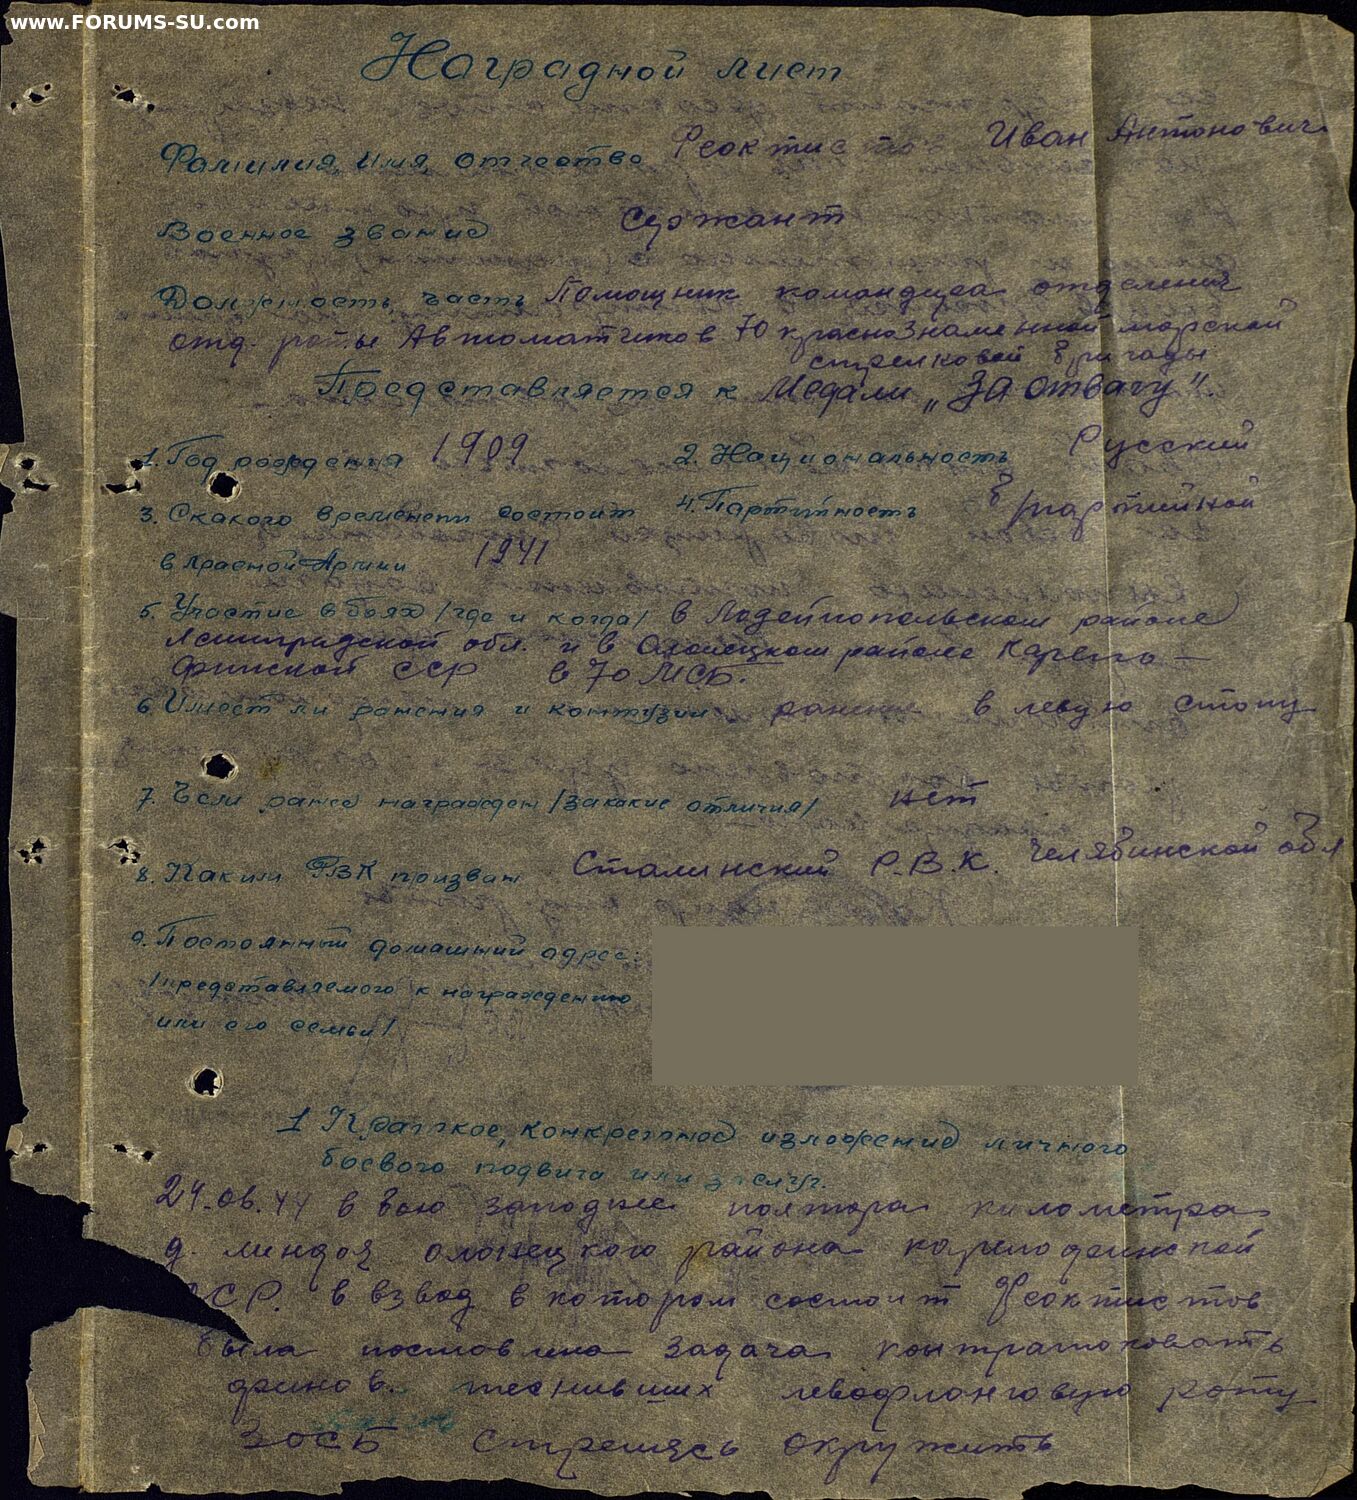 www.FORUMS-SU.com
Наградной лист
Фамилия, имя, отчество Феоктистов Иван Антонович
Военное звание Сержант
Должность, часть Помощник командира отделения
отд. роты Автоматчиков 70 краснознаменной морской
стрелковой бригады
Представляется к Медали „За отвагу".
1. Год рождения 1909 2. Национальность Русский
3. С какого времени состоит 4. Партийность б/партийной
в Красной Армии 1941
5. Участие в боях /где и когда/ в Лодейнопольском районе
Ленинградской обл. и в Олонецком районе Карело-
Финской ССР в 70 МСБ.
6. Имеет ли ранения и контузии ранение в левую стопу
7. Если ранее награжден /за какие отличия/ нет
8. Каким РВК призван Сталинский Р.В.К. Челябинской обл
9. Постоянный домашний адрес:
/представляемого к награждению
или его семьи/
1 Краткое, конкретное изложение личного
боевого подвига или заслуг.
24.06.44 в бою западнее полтора километра
д. линдоя олонецкого района карелофинской
ССР. в взвод в котором состоит Феоктистов
была поставлена задача контратаковать
финов. теснивших левофланговую роту
3ОСБ стремясь окружить